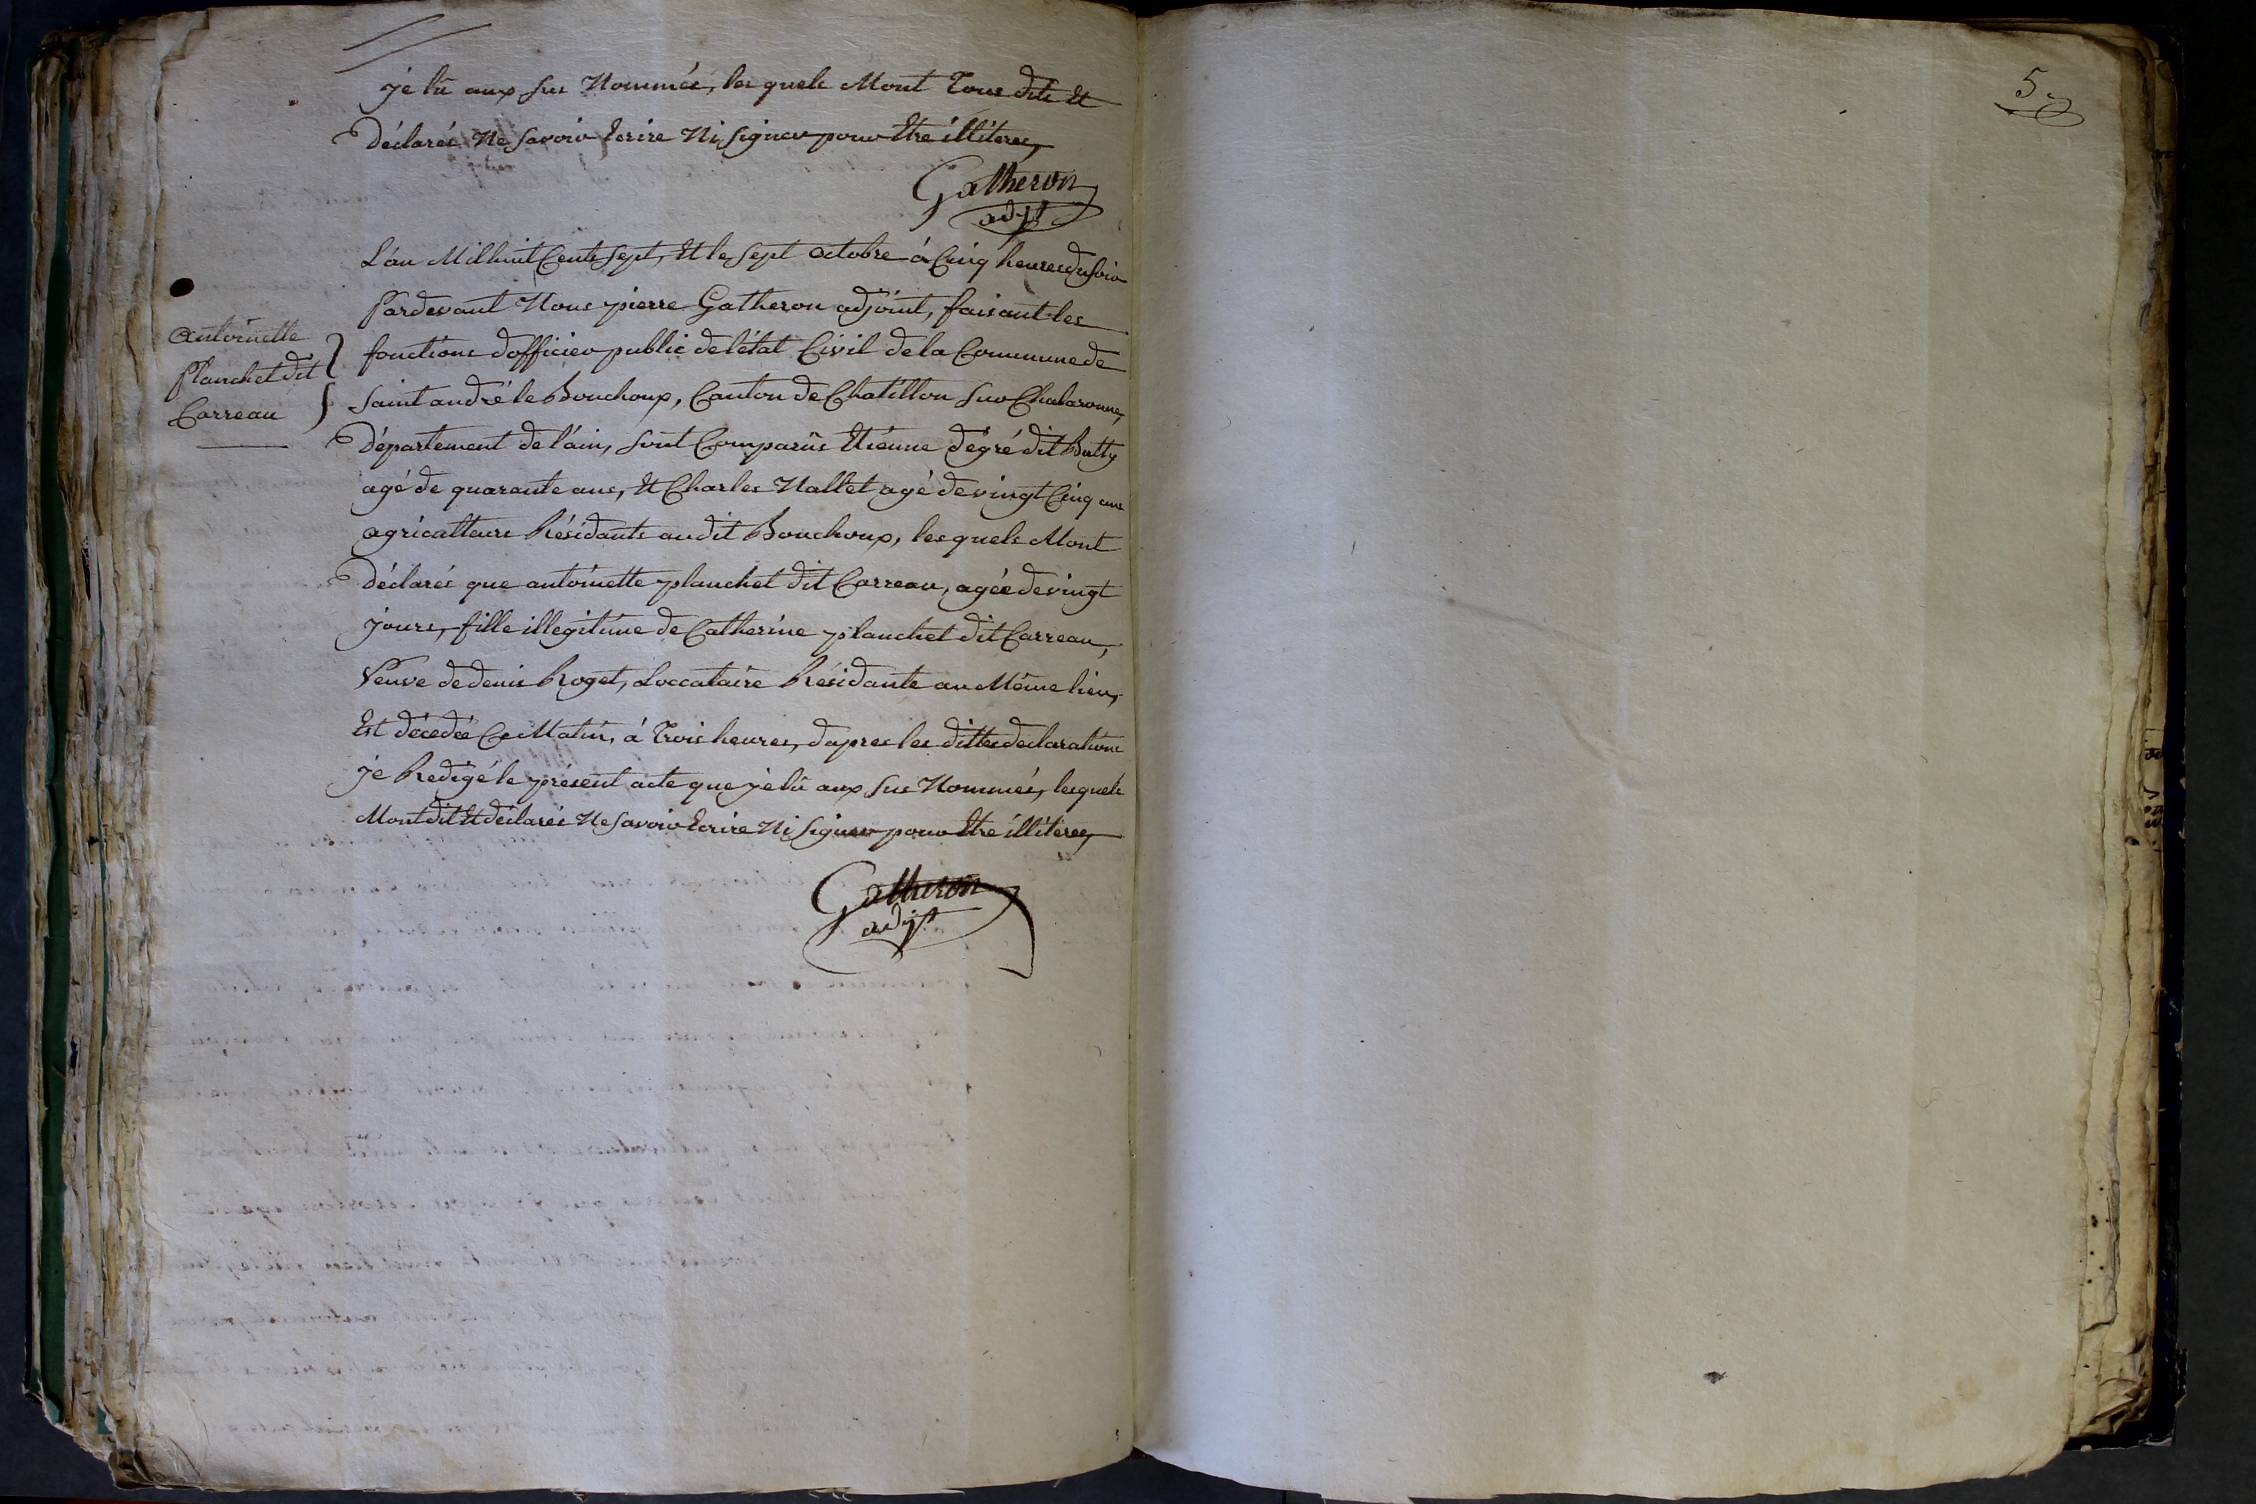 jé lû aux sus Nommés, les quels Mont Tous dits Et
déclarés Ne savoir Ecrire Ni signer pour Etre illiteres,
Gatheron
adjt
L'an Mil huit Cents sept, Et le sept octobre à Cinq heures du soir
Pardevant Nous pierre Gatheron adjoint, faisant les
fonctions d'officier public de l'état Civil de la Commune de
Saint andré le Bouchoux, Canton de Chatillon sur Chalaronne,
Département de l'ain, sont Comparûs Etiénne dégré dit Butty
agé de quarante ans, Et Charles Nallet agé de vingt Cinq ans
agricalteurs Résidants audit Bouchoux, les quels Mont
déclarés que antoinette planchet dit Carreau, agée de vingt
jours, fille illegitime de Catherine planchet dit Carreau,
Veuve de denis Roget, Loccataire Résidante au Même lieu,
Est décedée Ce Matin, à Trois heures, dapres les dittes declarations
j'é Redigé le présent acte que jé lû aux sus Nommés, lesquels
Mont dit Et déclarés Ne savoir Ecrire Ni signer pour Etre illiteres,
Gatheron
adjt
antoinette
Planchet dit
Carreau
5